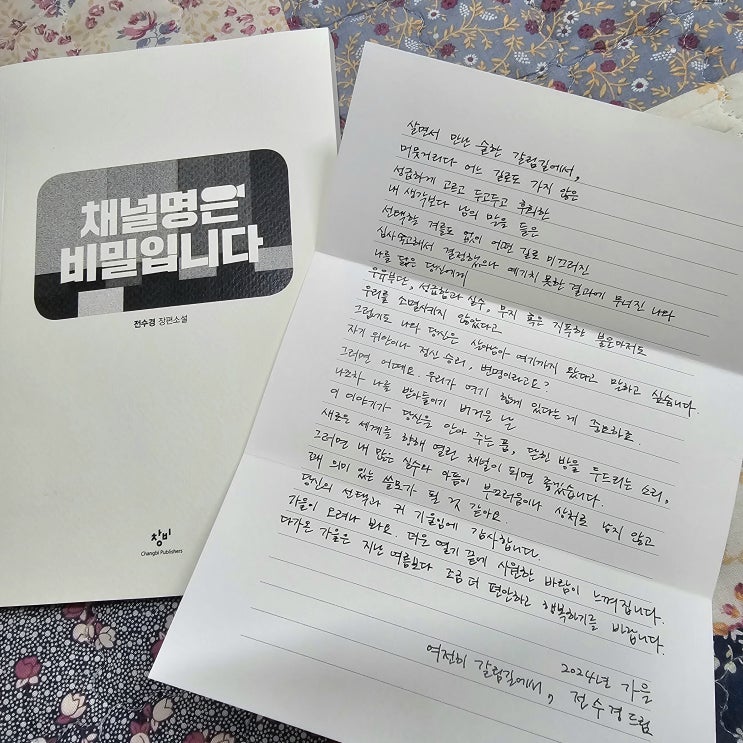 채널명은
비밀입니다
전수경 장편소설
창비
Changbi Publishers
살면서 만난 숱한 갈림길에서,
머뭇거리다 어느 길로도 가지 않은
성급하게 고르고 두고두고 후회한
내 생각보다 남의 말을 들은
선택할 겨를도 없이 어떤 길로 미끄러진
심사숙고해서 결정했으나 예기치 못한 결과에 무너진 나와
나를 닮은 당신에게
우유부단, 성급함과 실수, 무지 혹은 지독한 불운마저도
우리를 소멸시키지 않았다고
그럼에도 나와 당신은 살아남아 여기까지 왔다고 말하고 싶습니다.
자기 위안이나 정신 승리, 변명이라고요?
그러면 어때요. 우리가 여기 함께 있다는 게 중요하죠.
나조차 나를 받아들이기 버거운 날
이 이야기가 당신을 안아 주는 품, 닫힌 방을 두드리는 소리,
새로운 세계를 향해 열린 채널이 되면 좋겠습니다.
그러면 내 많은 실수와 아픔이 부끄러움이나 상처로 남지 않고
꽤 의미 있는 쓸모가 될 것 같아요.
당신의 선택과 귀 기울임에 감사합니다.
가을이 오려나 봐요. 더운 열기 끝에 시원한 바람이 느껴집니다.
다가온 가을은 지난 여름보다 조금 더 편안하고 행복하기를 바랍니다.
2024년 가을
여전히 갈림길에서, 전수경 드림